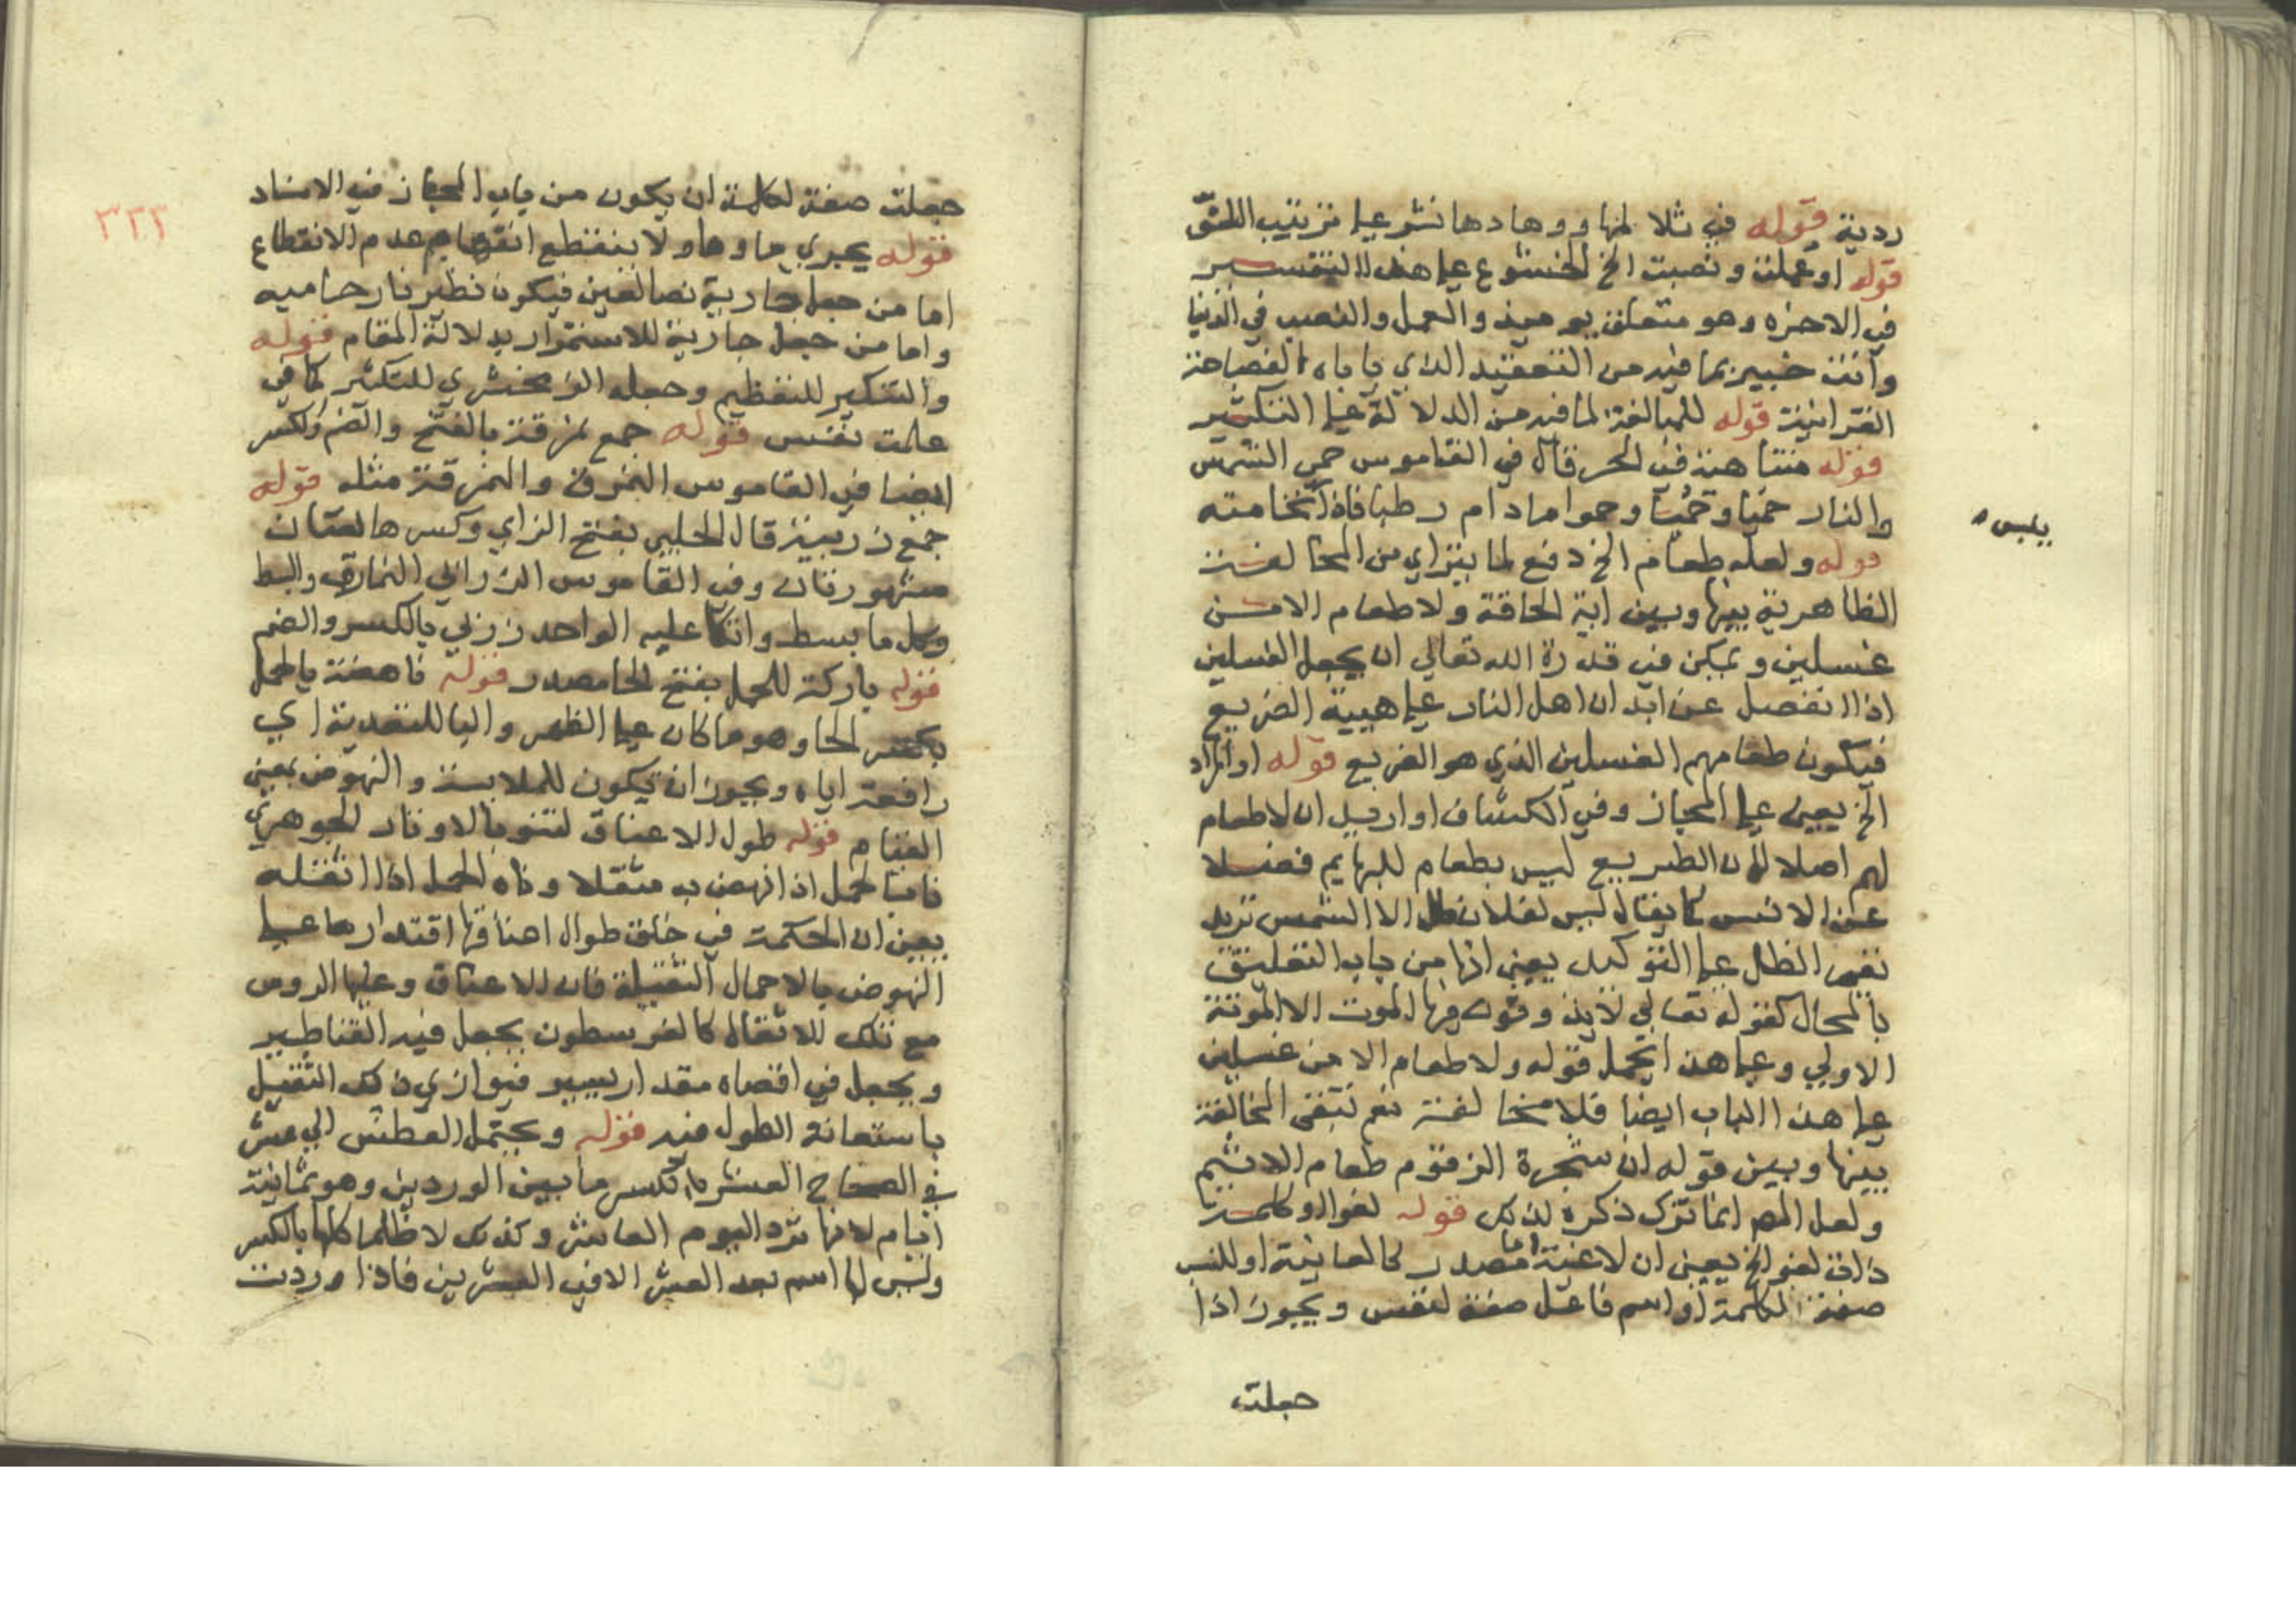 ردية قوله في تلالها ووهادها نشر على ترتيب اللف
قوله او عملت ونصبت الخ الخشوع على هذا التفسير
في الاخرة وهو متعلق يومئذ والعمل والنصب في الدنيا
وانت خبير بما فيه من التعقيد الذي ياباه الفصاحة
القرانية قوله للمبالغة لما فيه من الدلالة على التكثير
قوله متناهية في الحر قال في القاموس حمى الشمس
والنار حميا وحميا وحموا مادام رطبا فاذا نخامته
قوله ولعله طعام الخ دفع لما يتراي من المخالفة
الظاهرية بينها وبين اية الحاقة ولا طعام الا من
غسلين ويمكن في قدرة الله تعالى ان يجعل الغسلين
اذا انفصل عن ابدان اهل النار على هيية الضريع
فيكون طعامهم الغسلين الذي هو الضريع قوله او المراد
الخ يعني على المجاز وفي الكشاف او اريد ان لا طعام
لهم اصلا لان الضريع ليس بطعام للبهايم فضلا
عن الانس كما يقال ليس لفلان ظل الا الشمس تريد
نفي الظل على التوكيد يعني انها من باب التعليق
بالمحال كقوله تعالى لا يذوقون فيها الموت الا الموتة
الاولى وعلى هذا يحمل قوله ولا طعام الا من غسلين
على هذا الباب ايضا فلا مخالفة نعم تبقى المخالفة
بينها وبين قوله ان شجرة الزقوم طعام الاثيم
ولعل المص انما ترك ذكره لذلك قوله لغوا او كلمة
ذات لغو الخ يعني ان لاغية اما مصدر كالعافية او للنسب
صفة الكلمة او اسم فاعل صفة لنفس ويجوز اذا
جعلت
يلبس
٣٢٢
جعلت صفة لكلمة ان يكون من باب المجاز في الاسناد
قوله يجري ماوها ولا ينقطع انفهام عدم الانقطاع
اما من جعل جارية نصا لعين فيكون نظير نار حاميه
واما من جعل جارية للاستمرار بدلالة المقام قوله
والتنكير للتعظيم وجعله الزمخشري للتكثير كما في
علمت نفس قوله جمع نمرقة بالفتح والضم والكسر
ايضا في القاموس النمرق والنمرقة مثله قوله
جمع زربية قال الحلبي بفتح الزاي وكسرها لغتان
مشهورتان وفي القاموس الزرابي النمارق والبسط
وكل ما بسط واتكا عليه الواحد زربي بالكسر والضم
قوله باركة للحمل بفتح الحا مصدر قوله ناهضة بالحمل
بكسر الحا وهو ما كان على الظهر والبا للتعدية اي
رافعة اياه ويجوز ان تكون للملابسة والنهوض بمعنى
القيام قوله طول الاعناق لتنو بالاوقار الجوهري
نا بالحمل اذا نهض به مثقلا وناه الحمل اذا اثقله
يعني ان الحكمة في خلق طوال اعناقها اقتدارها على
النهوض بالاحمال الثقيلة فان الاعناق وعليها الروس
مع تلك الاثقال كالقرسطون يجعل فيه القناطير
ويجعل في اقصاه مقدار يسير فيوازي ذلك الثقيل
باستعانة الطول فيه قوله ويحتمل العطش الى عشر
في الصحاح العشر بالكسر ما بين الوردين وهو ثمانية
ايام لانها ترد اليوم العاشر وكذلك الاظما كلها بالكسر
وليس لها اسم بعد العشر الا في العشرين فاذا وردت